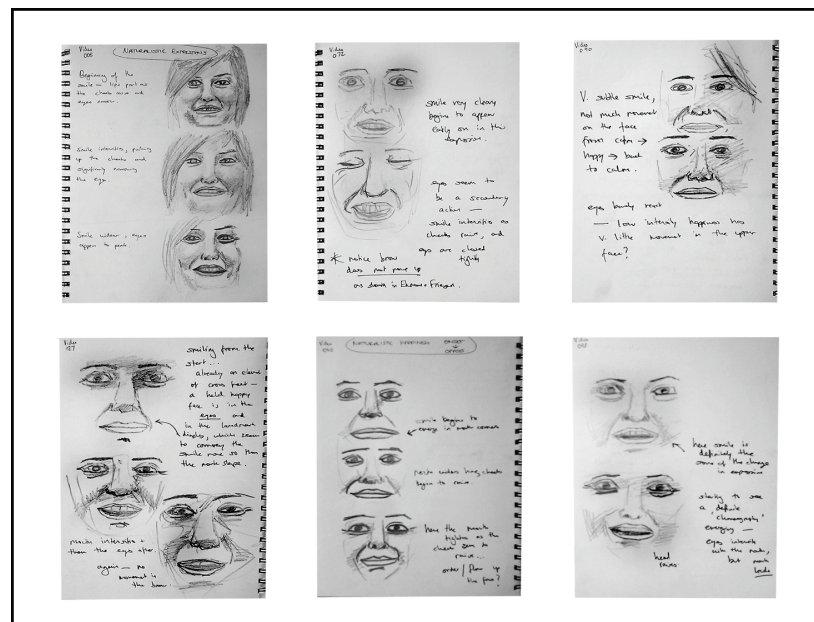 Video
005
NATURALISTIC EXPRESSIONS
Beginning of the
smile in lips part as
the cheeks raise and
eyes narrow.
Smile intensifies, pulling
up the cheeks and
significantly narrowing
the eyes.
Smile widens, eyes
appear to
Video
072
smile very clearly
begins to appear
early on in the
expression.
eyes seem to
be a secondary
action —
smile intensifies as
cheeks raise, and
eyes are closed
tightly
* notice brow
does not move up
as shown in Ekman + Friesen.
V. subtle smile,
not much movement
on the face
from calm →
happy → back
to calm.
eyes barely react
— low intensity happiness has
v. little movement in the upper
face?
Video
smiling from the
start...
already an element
of
a held happy
face is in the
eyes and
in the landmark
which seem
to convey the
smile more so than
the mouth shape.
mouth intensifies +
then the eyes after.
again — no
movement in
the brow.
Video
NATURALISTIC HAPPINESS
ONSET
↓
smile begins to
emerge in mouth corners
mouth widens
begin to raise.
here the mouth
tightens as the
cheeks seem to
raise...
order / flow up
the face?
Video
here smile is
definitely the
of the change
in expression
starting to see
a definite
'choreography'
emerging —
eyes intensify
with the mouth,
but mouth
leads
head
raises